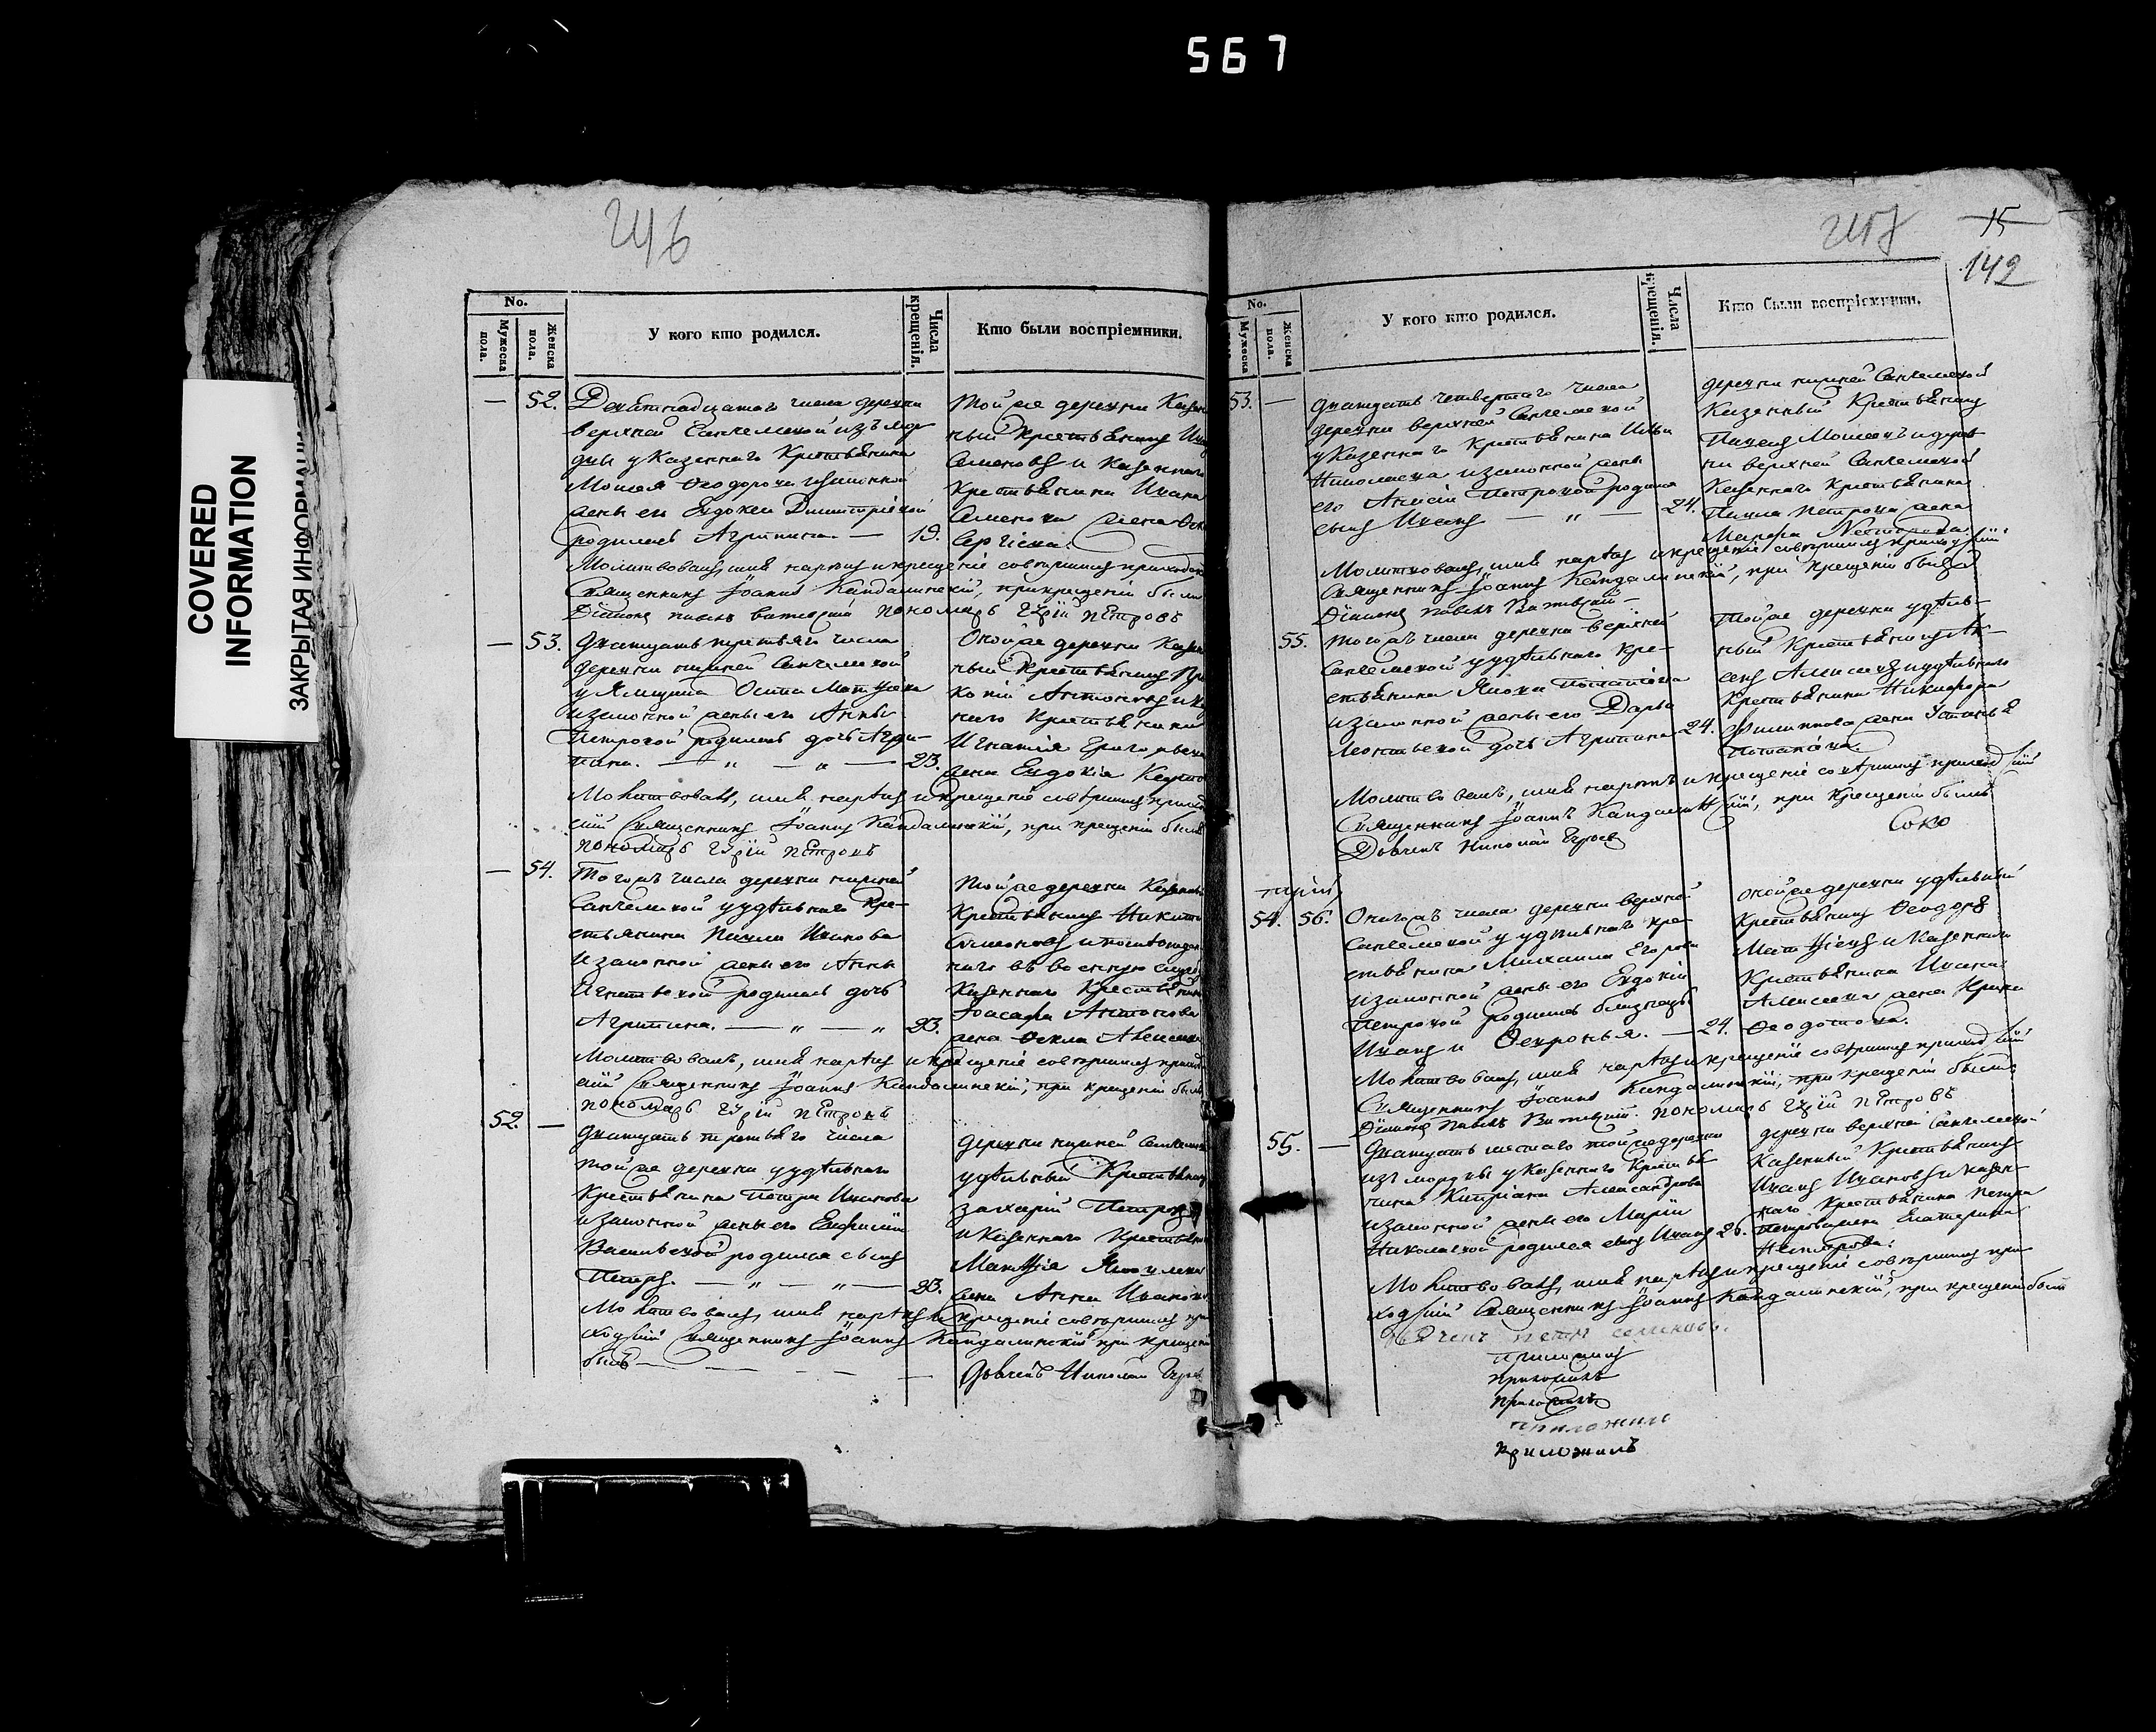 567
COVERED
INFORMATION
ЗАКРЫТАЯ ИНФОРМАЦИ
246
No.
Мужеска пола.
Женска пола.
У кого кто родился.
Числа крещенія.
Кто были воспріемники.
— 52. Девятнадцатаго числа деревни
верхней Санчелеевой изъ мор
двы у Казеннаго Крестьянина
Моисея Ѳеодорова и законной
жены его Евдокеи Димитріевой
родилась Агрипина. — 19.
той же деревни Казен
ный крестьянинъ
Семеновъ и Казеннаго
Крестьянина Ивана
Семенова жена
Сергіева.
Молитвовалъ, имя нарекъ и крещеніе совершилъ приходск
Священникъ Іоаннъ Кандалинскій, при крещеніи были
Діаконъ Павелъ пономарь Гурій Петровъ
— 53. Дватцать третьяго числа
деревни нижней Санчелеевой
у Ямщика Осипа Матвѣева
и законной жены его Анны
Петровой родилась дочь Агри-
пина. — „ — „ — 23.
Оной же деревни Казен
ный крестьянинъ
Антоновъ и
наго Крестьянина
Игнатія Григорьева
жена Евдокія
Молитвовалъ, имя нарекъ и крещеніе совершилъ приход
скій Священникъ Іоаннъ Кандалинскій, при крещеніи былъ
пономарь Гурій Петровъ
— 54. Того жъ числа деревни нижней
Санчелеевой у удѣльнаго кре-
стьянина Павла Иванова
и законной жены его Анны
Игнатьевой родилась дочь
Агрипина. — „ — „ 23.
той же деревни Казенный
Крестьянинъ Никита
Семеновъ и
наго въ военную службу
Казеннаго Крестьянина
Іоасафа Антонова
жена Ѳекла Алексеева
Молитвовалъ, имя нарекъ и крещеніе совершилъ приход
скій Священникъ Іоаннъ Кандалинскій, при крещеніи былъ
пономарь Гурій Петровъ
52. — Дватцать третьяго числа
той же деревни у удѣльнаго
Крестьянина Петра Иванова
и законной жены его Евфиміи
Васильевой родился сынъ
Петръ. — „ — „ — 23.
деревни нижней Санчелеев
удѣльный Крестьянинъ
Захарій Петровъ
и Казеннаго Крестьян
Матвѣя
жена Анна Иванова
Молитвовалъ, имя нарекъ и крещеніе совершилъ при
ходскій Священникъ Іоаннъ Кандалинскій при крещеніи
былъ — — — — Дьячекъ Николай
247
15
142
No.
Мужеска
Женска пола.
У кого кто родился.
Числа крещенія.
Кто были воспріемники.
53. — Дватцать четвертаго числа
деревни верхней Санчелеевой
у Казеннаго Крестьянина Ильи
Николаева и законной жены
его Анисіи Петровой родился
сынъ Иванъ — „ — 24.
деревни нижней Санчелеевой
Казенный Крестьянинъ
Павелъ Моисеевъ и дерев
ни верхней Санчелеевой
Казеннаго Крестьянина
Павла Петрова жена
Марфа Несторова.
Молитвовалъ, имя нарекъ и крещеніе совершилъ приходскій
Священникъ Іоаннъ Кандалинскій, при крещеніи былъ
Діаконъ Павелъ
55. Того жъ числа деревни верхней
Санчелеевой у удѣльнаго кре-
стьянина Якова Потапова
и законной жены его Дарьи
Леонтьевой дочь Агрипина 24.
Той же деревни удѣль-
ный Крестьянинъ
Алексеевъ и удѣльнаго
Крестьянина Никифора
Филиппова жена Устинья
Потапова.
Молитвовалъ, имя нарекъ и крещеніе совершилъ приходскій
Священникъ Іоаннъ Кандалинскій, при крещеніи былъ
Дьячекъ Николай
Соко
54. 56. Оного жъ числа деревни верхней
Санчелеевой у удѣльнаго кре-
стьянина Михаила Егорова
и законной жены его Евдокіи
Петровой родились близнецы
Иванъ и Ѳевронья. — 24.
оной же деревни удѣльный
Крестьянинъ Ѳеодоръ
Матвѣевъ и Казеннаго
Крестьянина Ивана
Алексеева жена Ирина
Ѳеодотова.
Молитвовалъ, имя нарекъ и крещеніе совершилъ приходскій
Священникъ Іоаннъ Кандалинскій, при крещеніи были
Діаконъ Павелъ пономарь Гурій Петровъ
55. — Дватцать шестаго той же деревни
изъ мордвы у Казеннаго Крестья
нина Кипріана Александрова
и законной жены его Маріи
Николаевой родился сынъ Иванъ 26.
деревни верхней Санчелеево
Казенный Крестьянинъ
Иванъ Ивановъ и Казен-
наго Крестьянина Петра
Петрова жена Екатерина
Несторова.
Молитвовалъ, имя нарекъ и крещеніе совершилъ при
ходскій Священникъ Іоаннъ Кандалинскій, при крещеніи былъ
Дьячекъ Петръ Семеновъ.
приложилъ
приложилъ
приложилъ
приложилъ
приложилъ